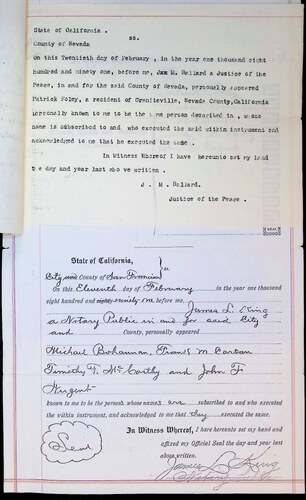 State of California .
ss.
County of Nevada
On this Twentieth day of February , in the year one thousand eight
hundred and ninety one, before me, M. Hallard a Justice of the
Peace, in and for the said County of Nevada, personally appeared
Patrick Foley, a resident of Graniteville, Nevada County,California
personally known to me to be the same person described in , whose
name is subscribed to and who executed the said within instrument and
acknowledged to me that he executed the same .
In Witness Whereof I have hereunto set my hand
the day and year last above written .
J . M . Hallard.
Justice of the Peace .
SEAL
State of California,
ss.
City and County of San Francisco
On this Eleventh day of February in the year one thousand
eight hundred and eighty ninety one before me,
James L. King
a Notary Public in and for said City
and County, personally appeared
Michael Bohannan, Francis M.
Timothy F. McCarthy and John F
Nugent
known to me to be the persons whose names are subscribed to and who executed
the within instrument, and acknowledged to me that they executed the same.
In Witness Whereof, I have hereunto set my hand and
affixed my Official Seal the day and year last
above written.
Seal
James L. King
Notary Public